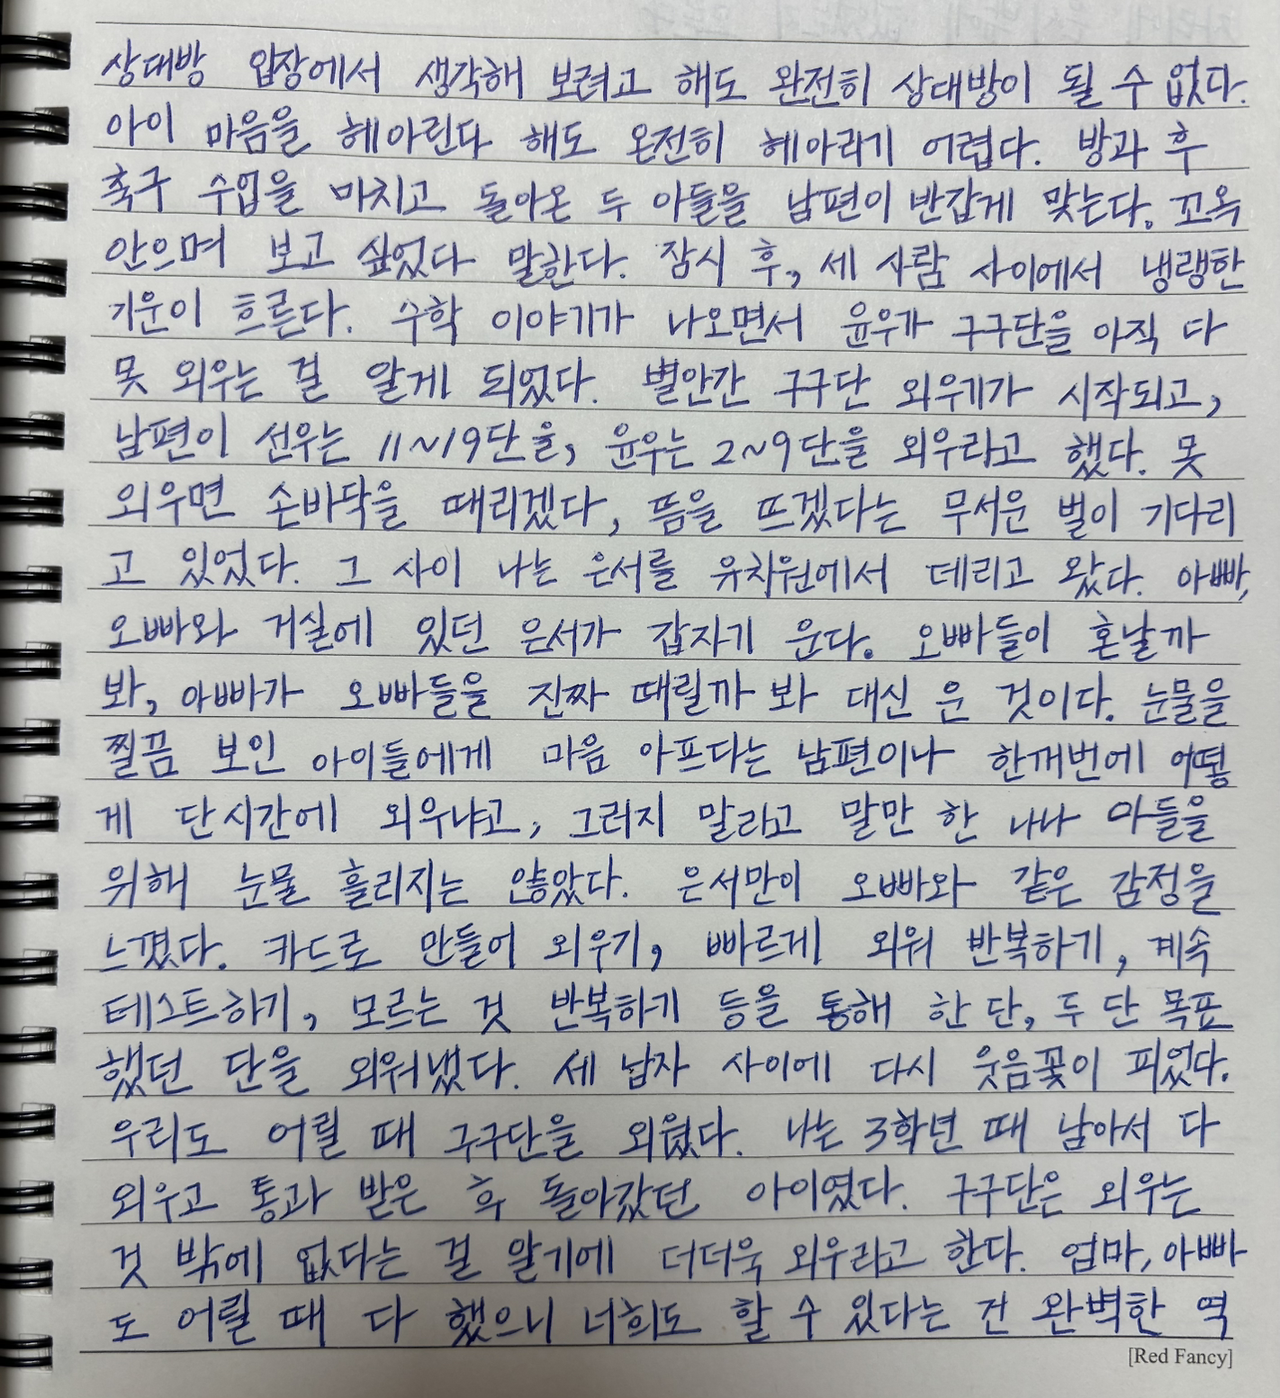 상대방 입장에서 생각해 보려고 해도 완전히 상대방이 될 수 없다.
아이 마음을 헤아린다 해도 온전히 헤아리기 어렵다. 방과 후
축구 수업을 마치고 돌아온 두 아들을 남편이 반갑게 맞는다. 꼬옥
안으며 보고 싶었다 말한다. 잠시 후, 세 사람 사이에서 냉랭한
기운이 흐른다. 수학 이야기가 나오면서 윤우가 구구단을 아직 다
못 외우는 걸 알게 되었다. 별안간 구구단 외우기가 시작되고,
남편이 선우는 11~19단을, 윤우는 2~9단을 외우라고 했다. 못
외우면 손바닥을 때리겠다, 뜸을 뜨겠다는 무서운 벌이 기다리
고 있었다. 그 사이 나는 은서를 유치원에서 데리고 왔다. 아빠,
오빠와 거실에 있던 은서가 갑자기 운다. 오빠들이 혼날까
봐, 아빠가 오빠들을 진짜 때릴까 봐 대신 운 것이다. 눈물을
찔끔 보인 아이들에게 마음 아프다는 남편이나 한꺼번에 어떻
게 단시간에 외우냐고, 그러지 말라고 말만 한 나나 아들을
위해 눈물 흘리지는 않았다. 은서만이 오빠와 같은 감정을
느꼈다. 카드로 만들어 외우기, 빠르게 외워 반복하기, 계속
테스트하기, 모르는 것 반복하기 등을 통해 한 단, 두 단 목표
했던 단을 외워냈다. 세 남자 사이에 다시 웃음꽃이 피었다.
우리도 어릴 때 구구단을 외웠다. 나는 3학년 때 남아서 다
외우고 통과 받은 후 돌아갔던 아이였다. 구구단은 외우는
것 밖에 없다는 걸 알기에 더더욱 외우라고 한다. 엄마, 아빠
도 어릴 때 다 했으니 너희도 할 수 있다는 건 완벽한 역
[Red Fancy]